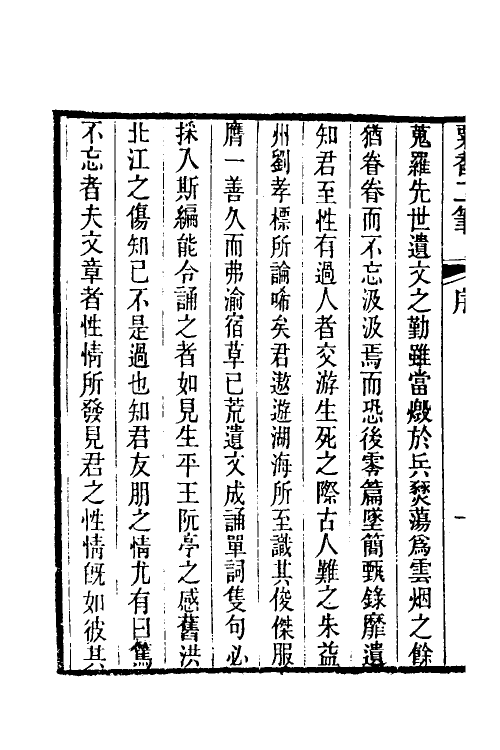 粟香二筆
序
一
蒐羅先世遺文之勤雖當燬於兵燹蕩爲雲烟之餘
猶眷眷而不忘汲汲焉而恐後零篇墜簡甄錄靡遺
知君至性有過人者交游生死之際古人難之朱益
州劉孝標所論唏矣君遨遊湖海所至識其俊傑服
膺一善久而弗渝宿草已荒遺文成誦單詞隻句必
採入斯編能令誦之者如見生平王阮亭之感舊洪
北江之傷知己不是過也知君友朋之情尤有曰篤
不忘者夫文章者性情所發見君之性情旣如彼其